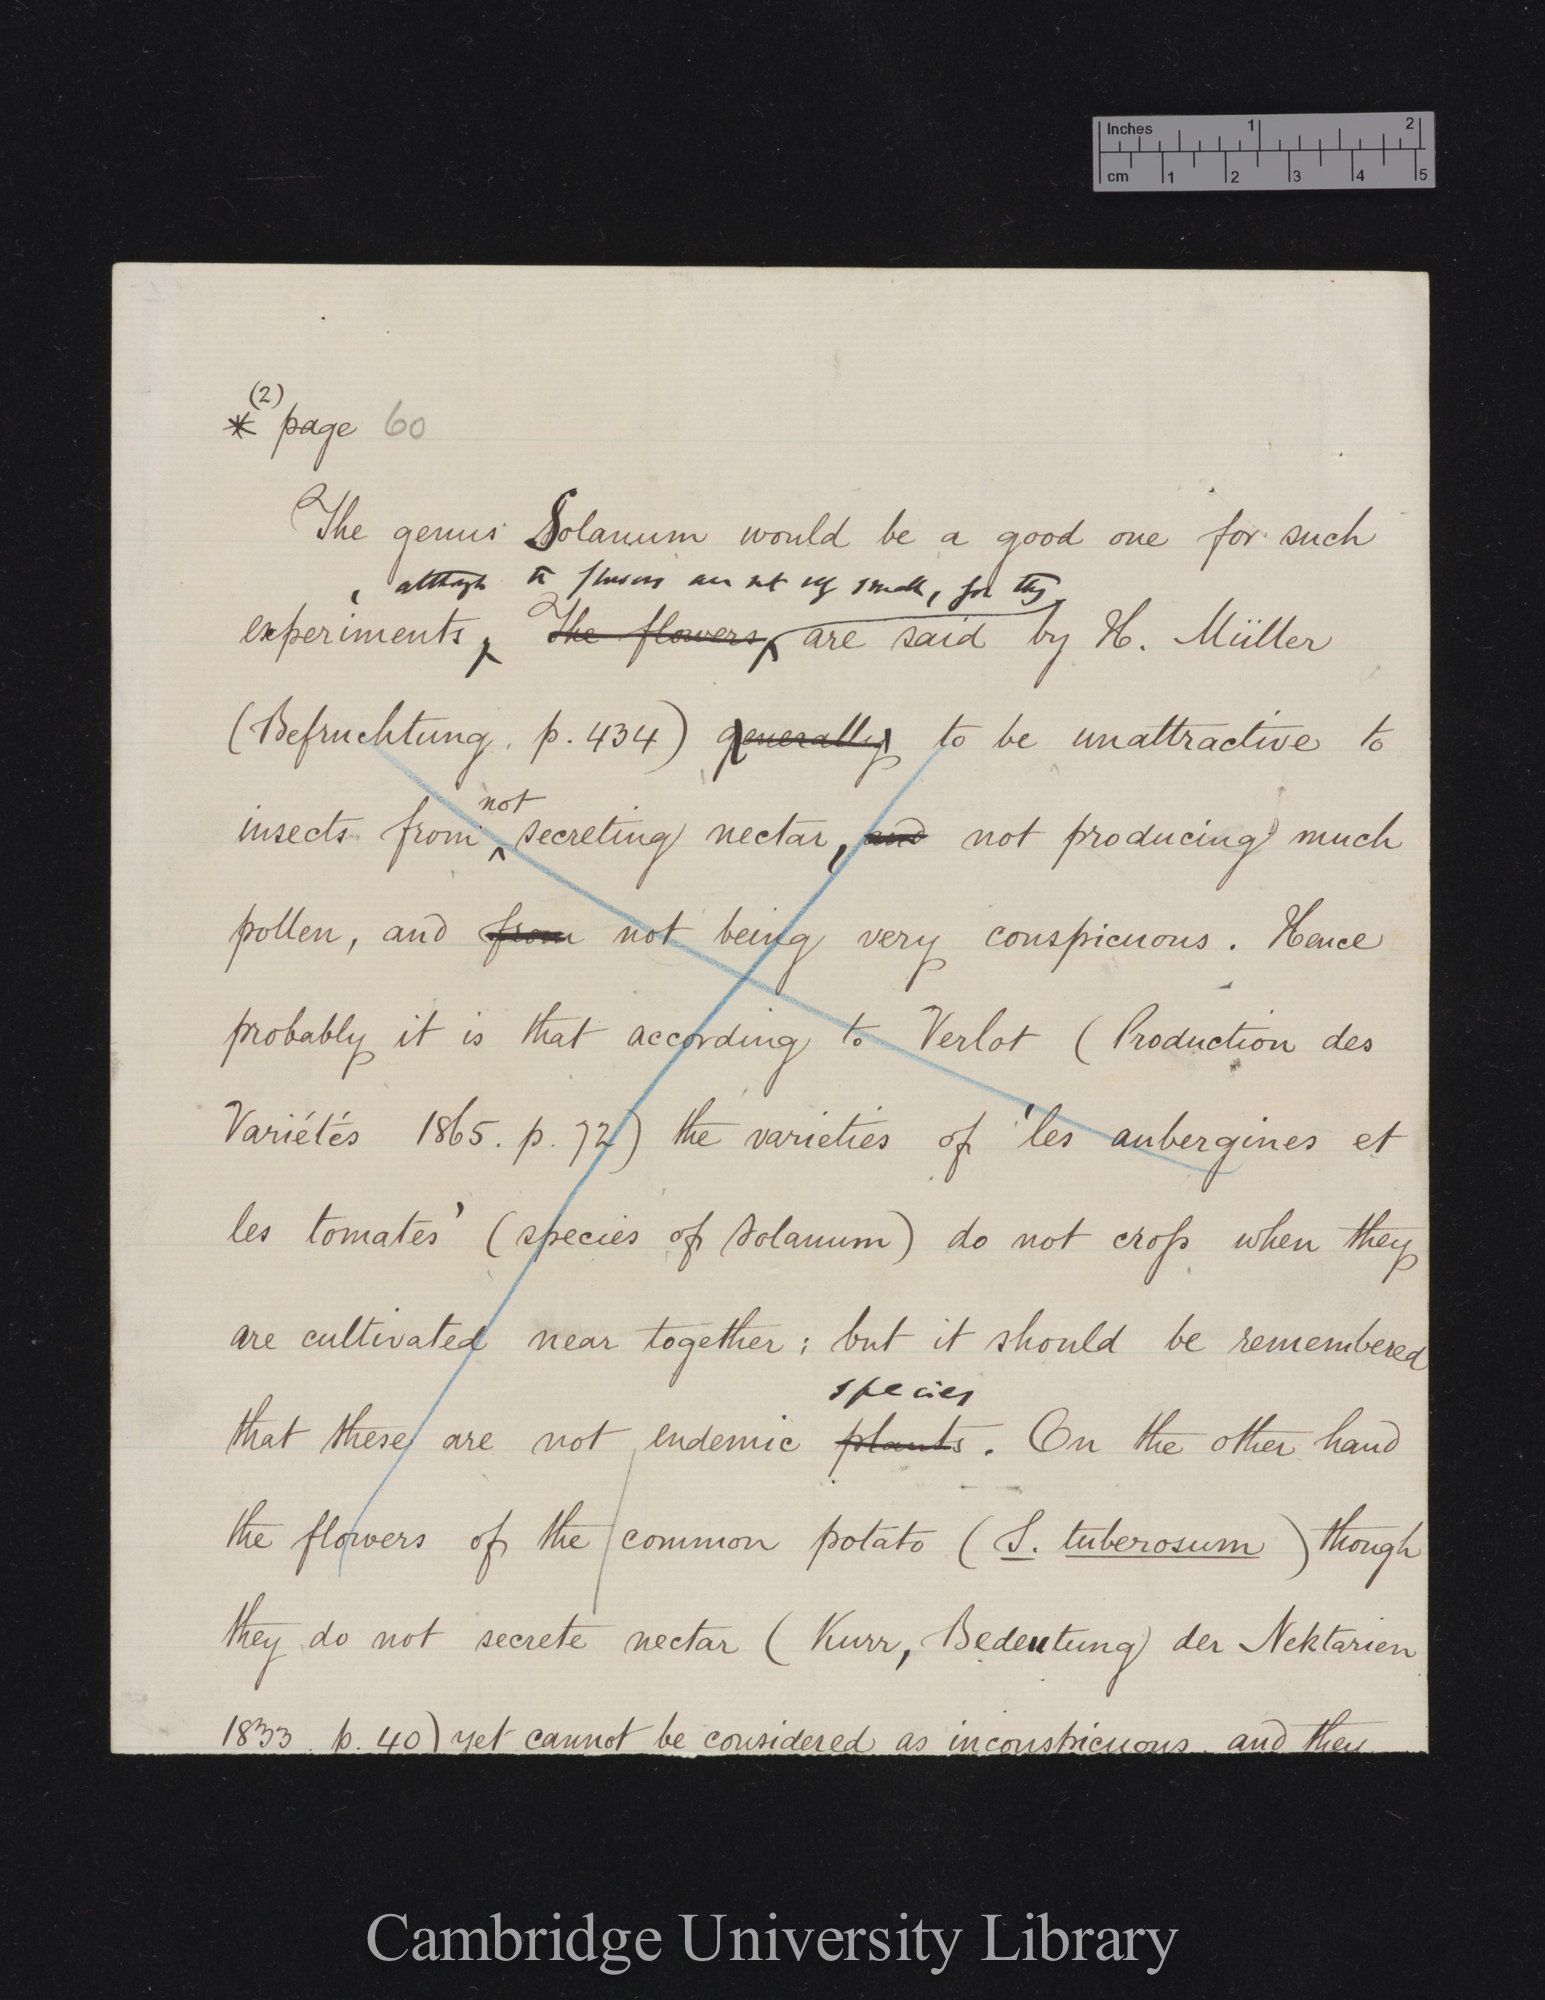 Inches 1 2
cm 1 2 3 4 5
(2)
* page 60
The genus Solanum would be a good one for such
, although the flowers are not very small, for they
experiments, The flowers, are said by H. Müller
(Befruchtung, p. 434) generally to be unattractive to
not
insects from secreting nectar, and not producing much
pollen, and from not being very conspicuous. Hence
probably it is that according to Verlot (Production des
Variétés 1865. p. 72) the varieties of 'les aubergines et
les tomates' (species of Solanum) do not cross when they
are cultivated near together; but it should be remembered
species
that these are not endemic plants. On the other hand
the flowers of the common potato (S. tuberosum) though
they do not secrete nectar (Kurr, Bedeutung der Nektarien
1833. p. 40) yet cannot be considered as inconspicuous, and they
Cambridge University Library